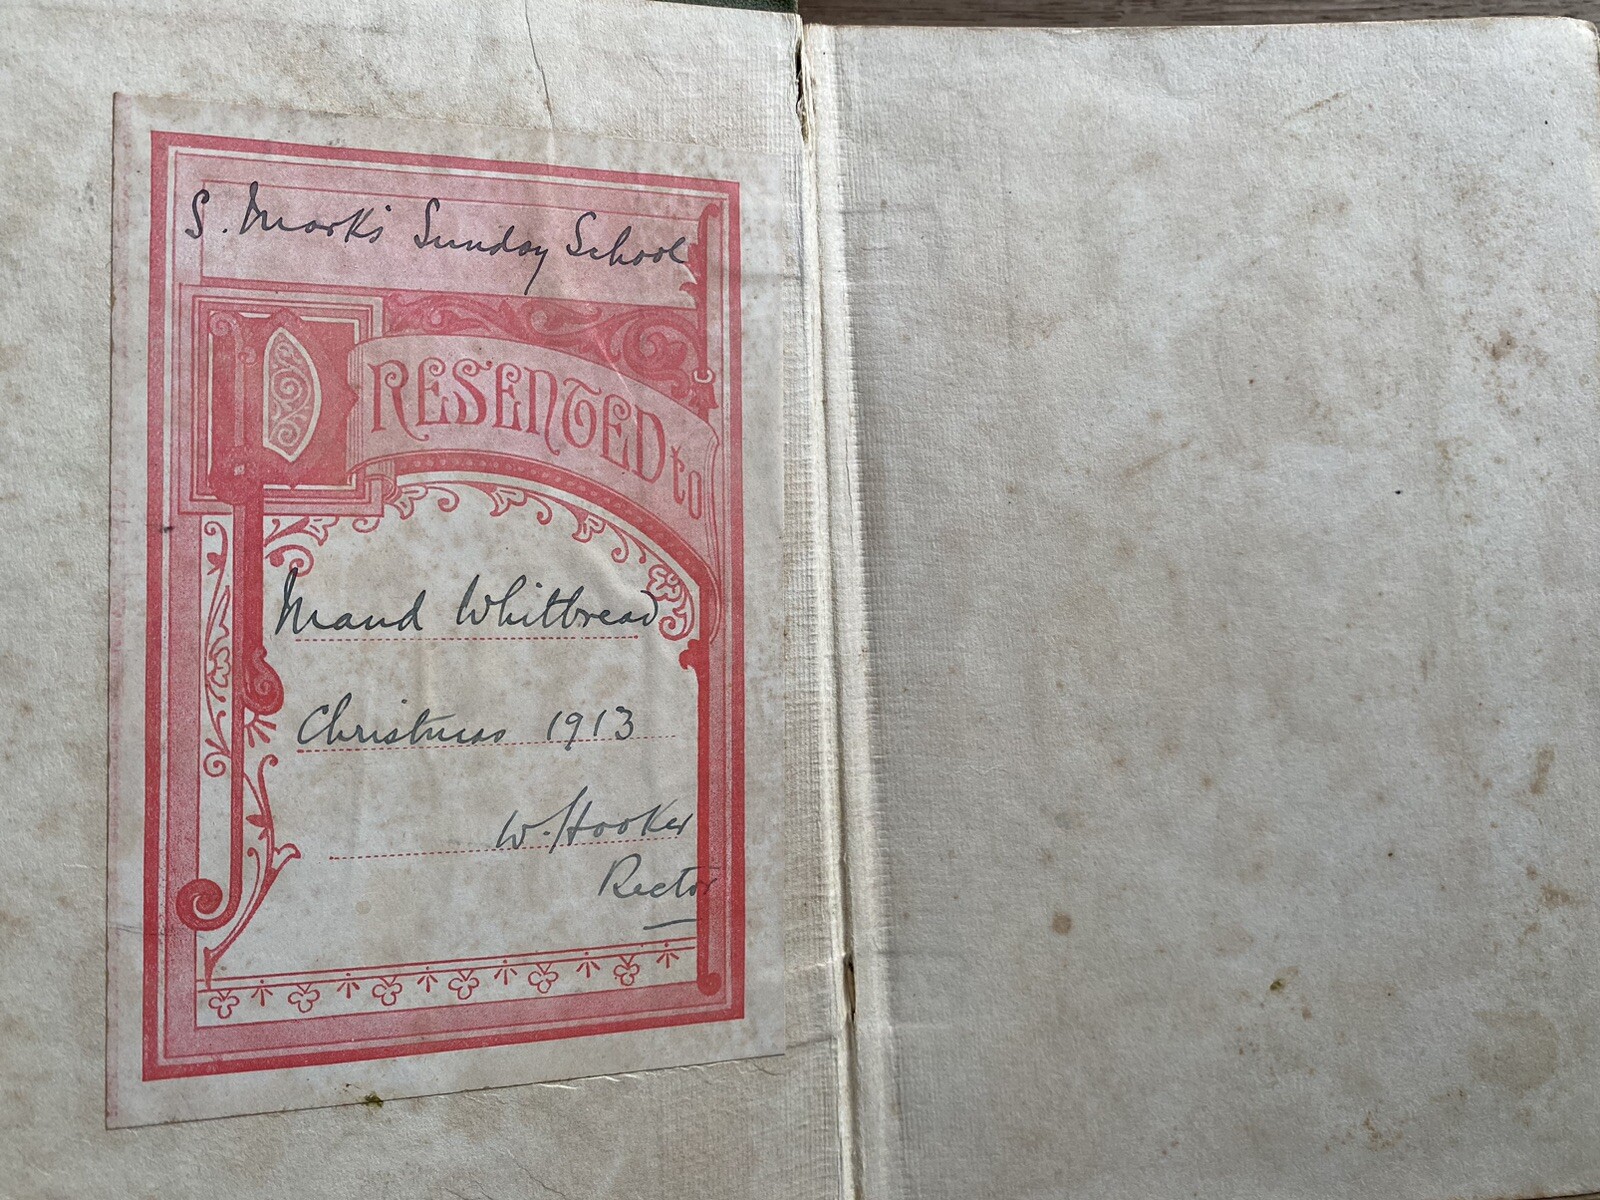 S. Mark's Sunday School
PRESENTED to
Maud Whitbread
Christmas 1913
W. Hooker
Rector